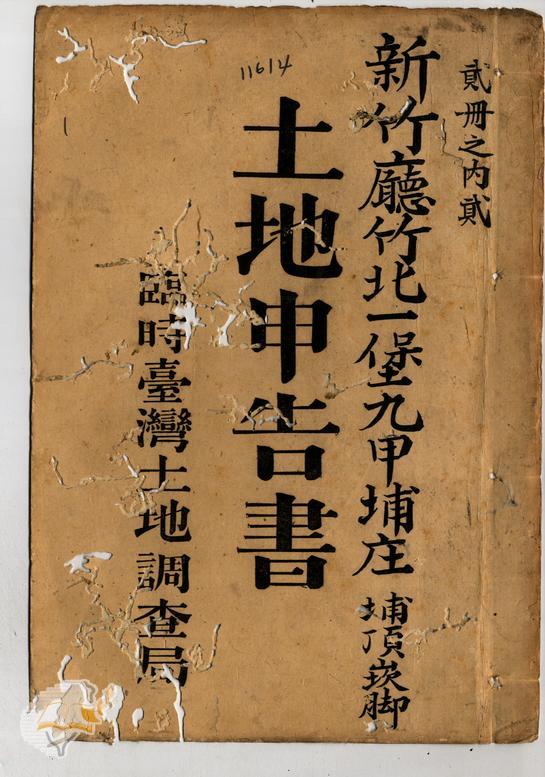 貳冊之內貳
新竹廳竹北一堡九甲埔庄 埔頂崁腳
11614
土地申告書
臨時臺灣土地調查局